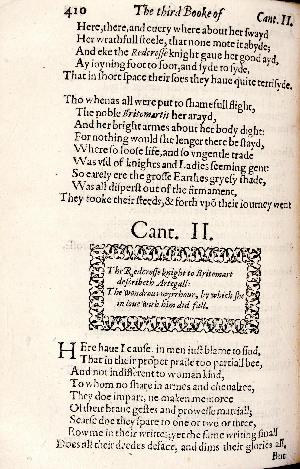 410 The third Booke of Cant. II.
Here, there, and euery where about her swayd
Her wrathfull steele, that none mote it abyde;
And eke the Redcrosse knight gaue her good ayd,
Ay ioyning foot to foot, and syde to syde,
That in short space their foes they haue quite terrifyde.
Tho whenas all were put to shamefull flight,
The noble Britomartis her arayd,
And her bright armes about her body dight:
For nothing would she lenger there be stayd,
Where so loose life, and so vngentle trade
Was vsd of knights and Ladies seeming gent:
So earely ere the grosse Earthes gryesy shade,
Was all disperst out of the firmament,
They tooke their steeds, & forth vpō their iourney went
Cant. II.
The Redcrosse knight to Britomart
describeth Artegall:
The wondrous myrrhour, by which she
in loue with him did fall.
HEre haue I cause, in men iust blame to find,
That in their proper praise too partiall bee,
And not indifferent to woman kind,
To whom no share in armes and cheualree,
They doe impart, ne maken memoree
Of their braue gestes and prowesse martiall;
Scarse doe they spare to one or two or three,
Rowme in their writtes; yet the same writing small
Does all their deedes deface, and dims their glories all,
But